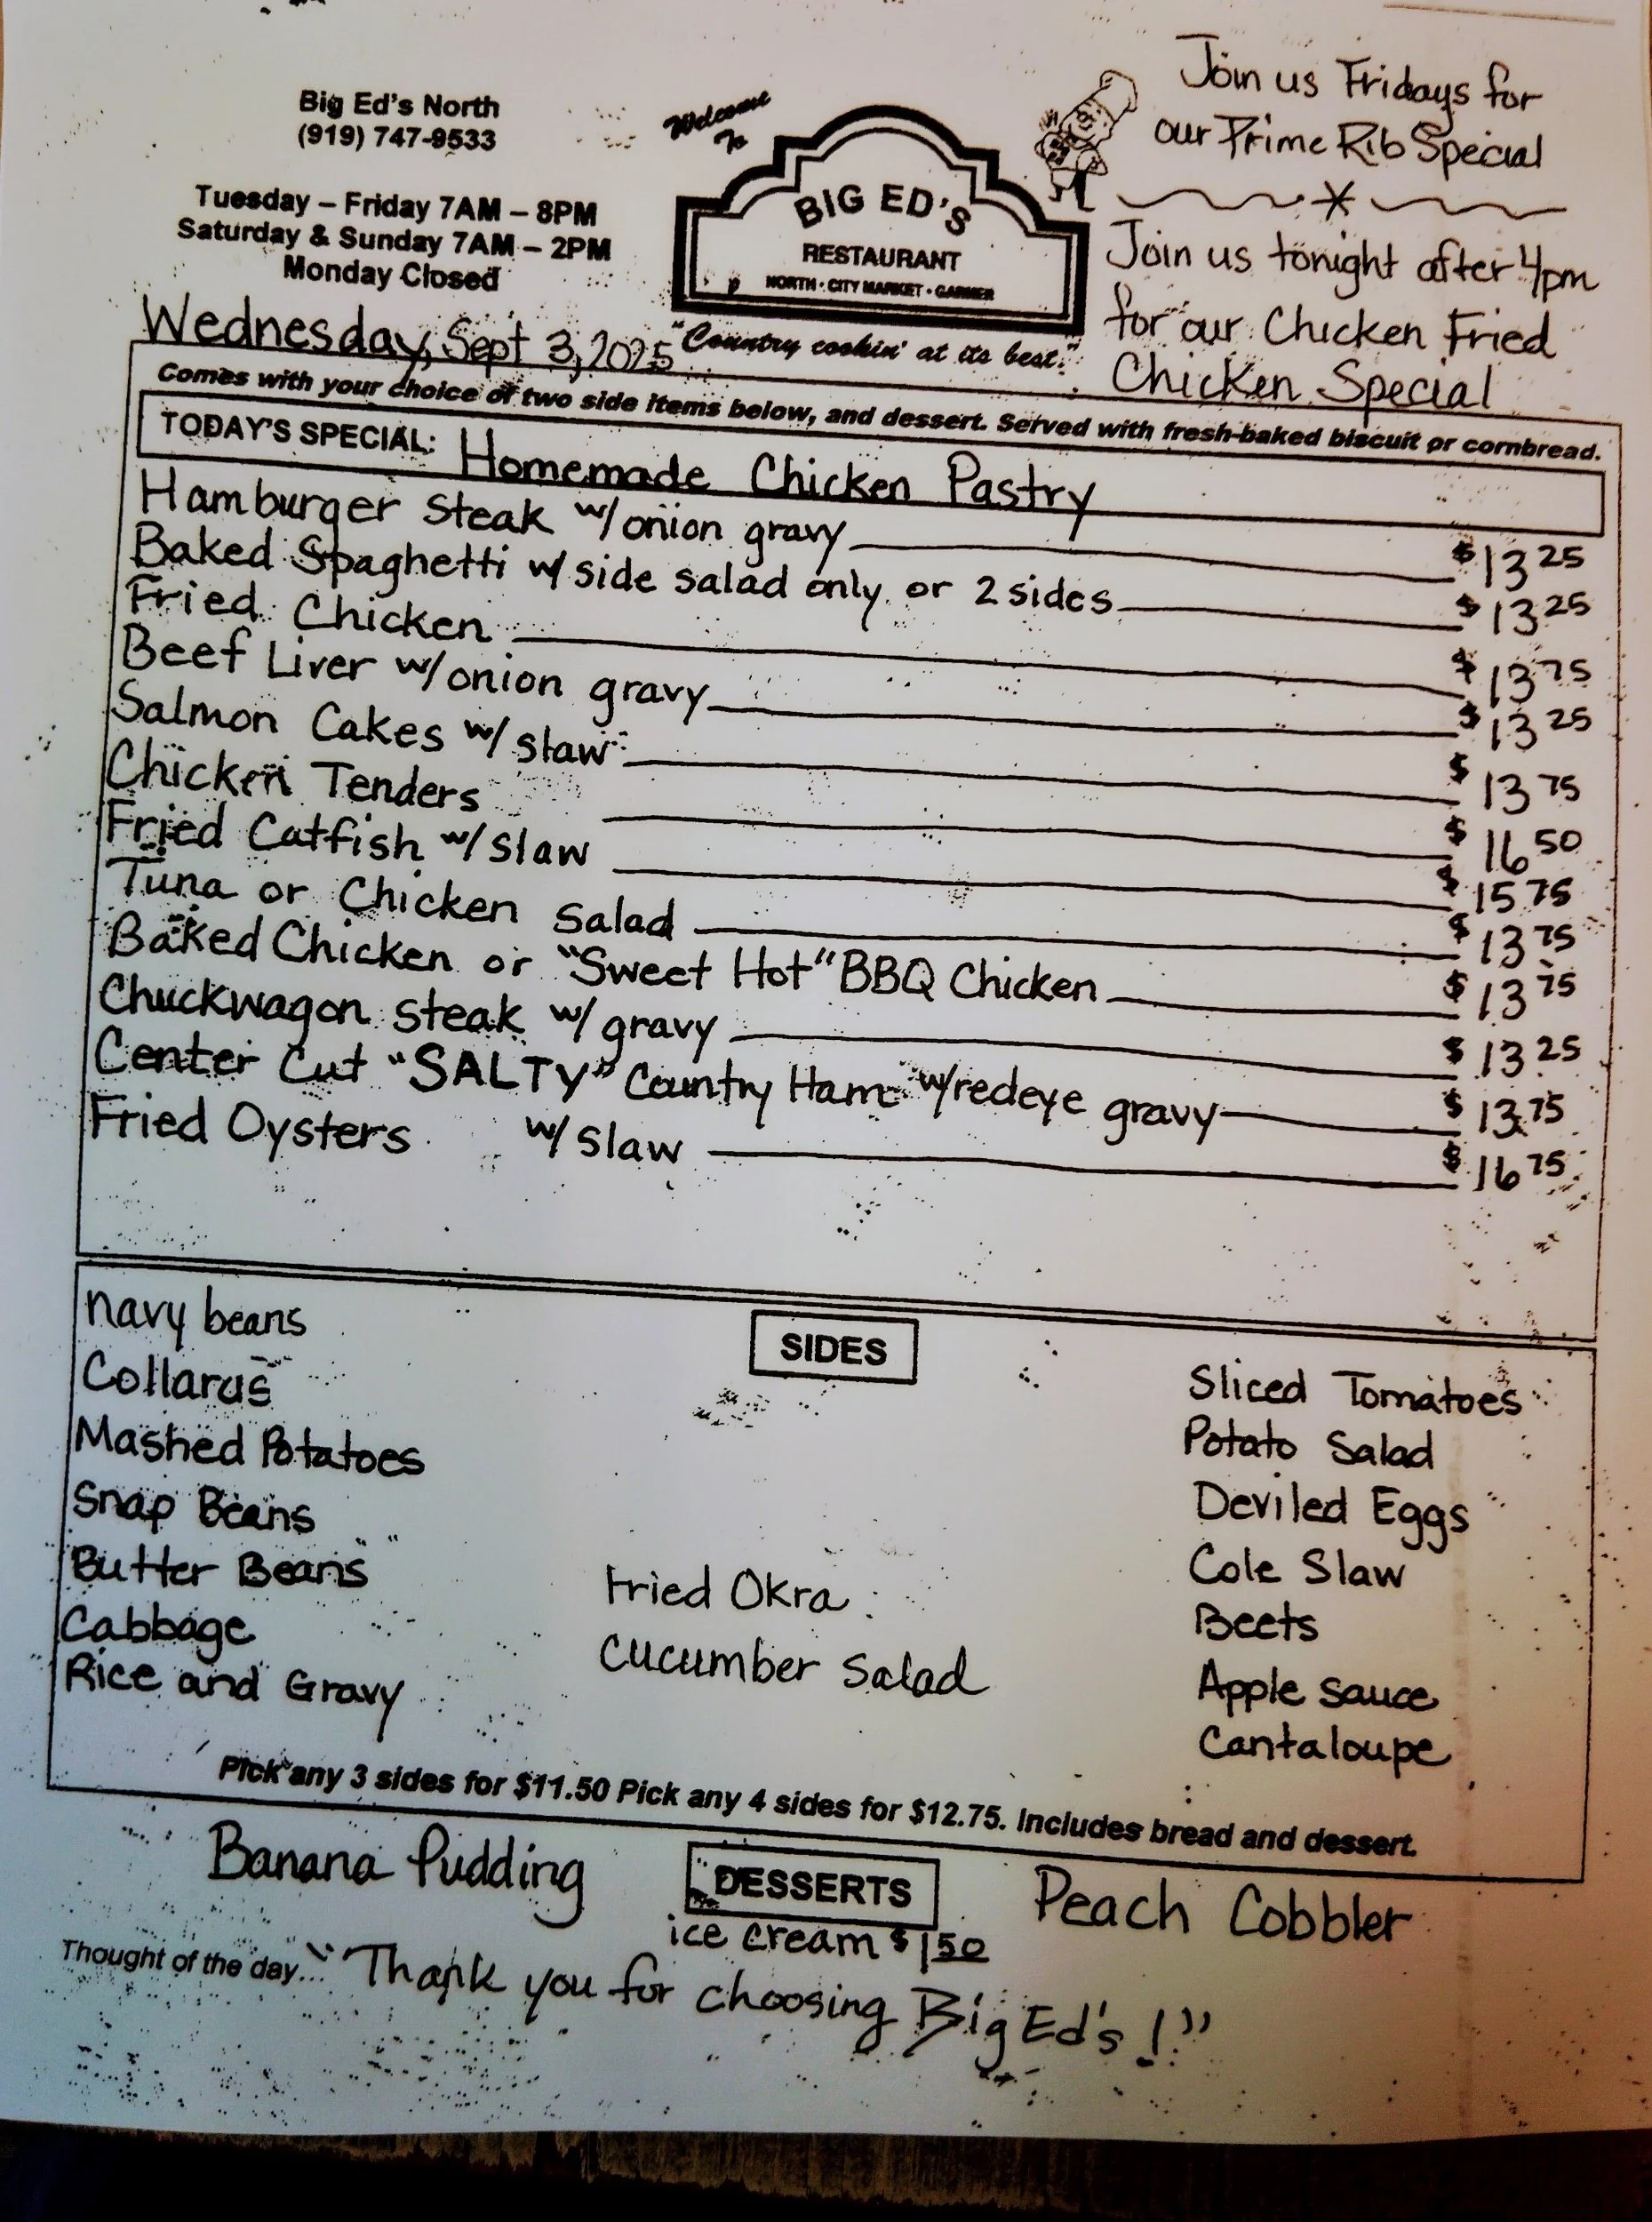 Big Ed's North
(919) 747-9533
Tuesday – Friday 7AM – 8PM
Saturday & Sunday 7AM – 2PM
Monday Closed
Welcome
To
BIG ED'S
RESTAURANT
NORTH • CITY MARKET • GARNER
"Country cookin' at its best."
Join us Fridays for
our Prime Rib Special
Join us tonight after 4pm
for our Chicken Fried
Chicken Special
Wednesday, Sept 3, 2025
Comes with your choice of two side items below, and dessert. Served with fresh-baked biscuit or cornbread.
TODAY'S SPECIAL: Homemade Chicken Pastry
Hamburger Steak w/ onion gravy $13 25
Baked Spaghetti w/ side salad only or 2 sides $13 25
Fried Chicken $13 75
Beef Liver w/ onion gravy $13 25
Salmon Cakes w/ slaw $13 75
Chicken Tenders $16 50
Fried Catfish w/ Slaw $15 75
Tuna or Chicken Salad $13 75
Baked Chicken or "Sweet Hot" BBQ Chicken $13 75
Chuckwagon Steak w/ gravy $13 25
Center Cut "SALTY" Country Ham w/ redeye gravy $13 75
Fried Oysters w/ Slaw $16 75
SIDES
navy beans
Collards
Mashed Potatoes
Snap Beans
Butter Beans
Cabbage
Rice and Gravy
Fried Okra
Cucumber Salad
Sliced Tomatoes
Potato Salad
Deviled Eggs
Cole Slaw
Beets
Apple Sauce
Cantaloupe
Pick any 3 sides for $11.50 Pick any 4 sides for $12.75. Includes bread and dessert.
DESSERTS
Banana Pudding
ice cream $1 50
Peach Cobbler
Thought of the day... "Thank you for choosing Big Ed's!"